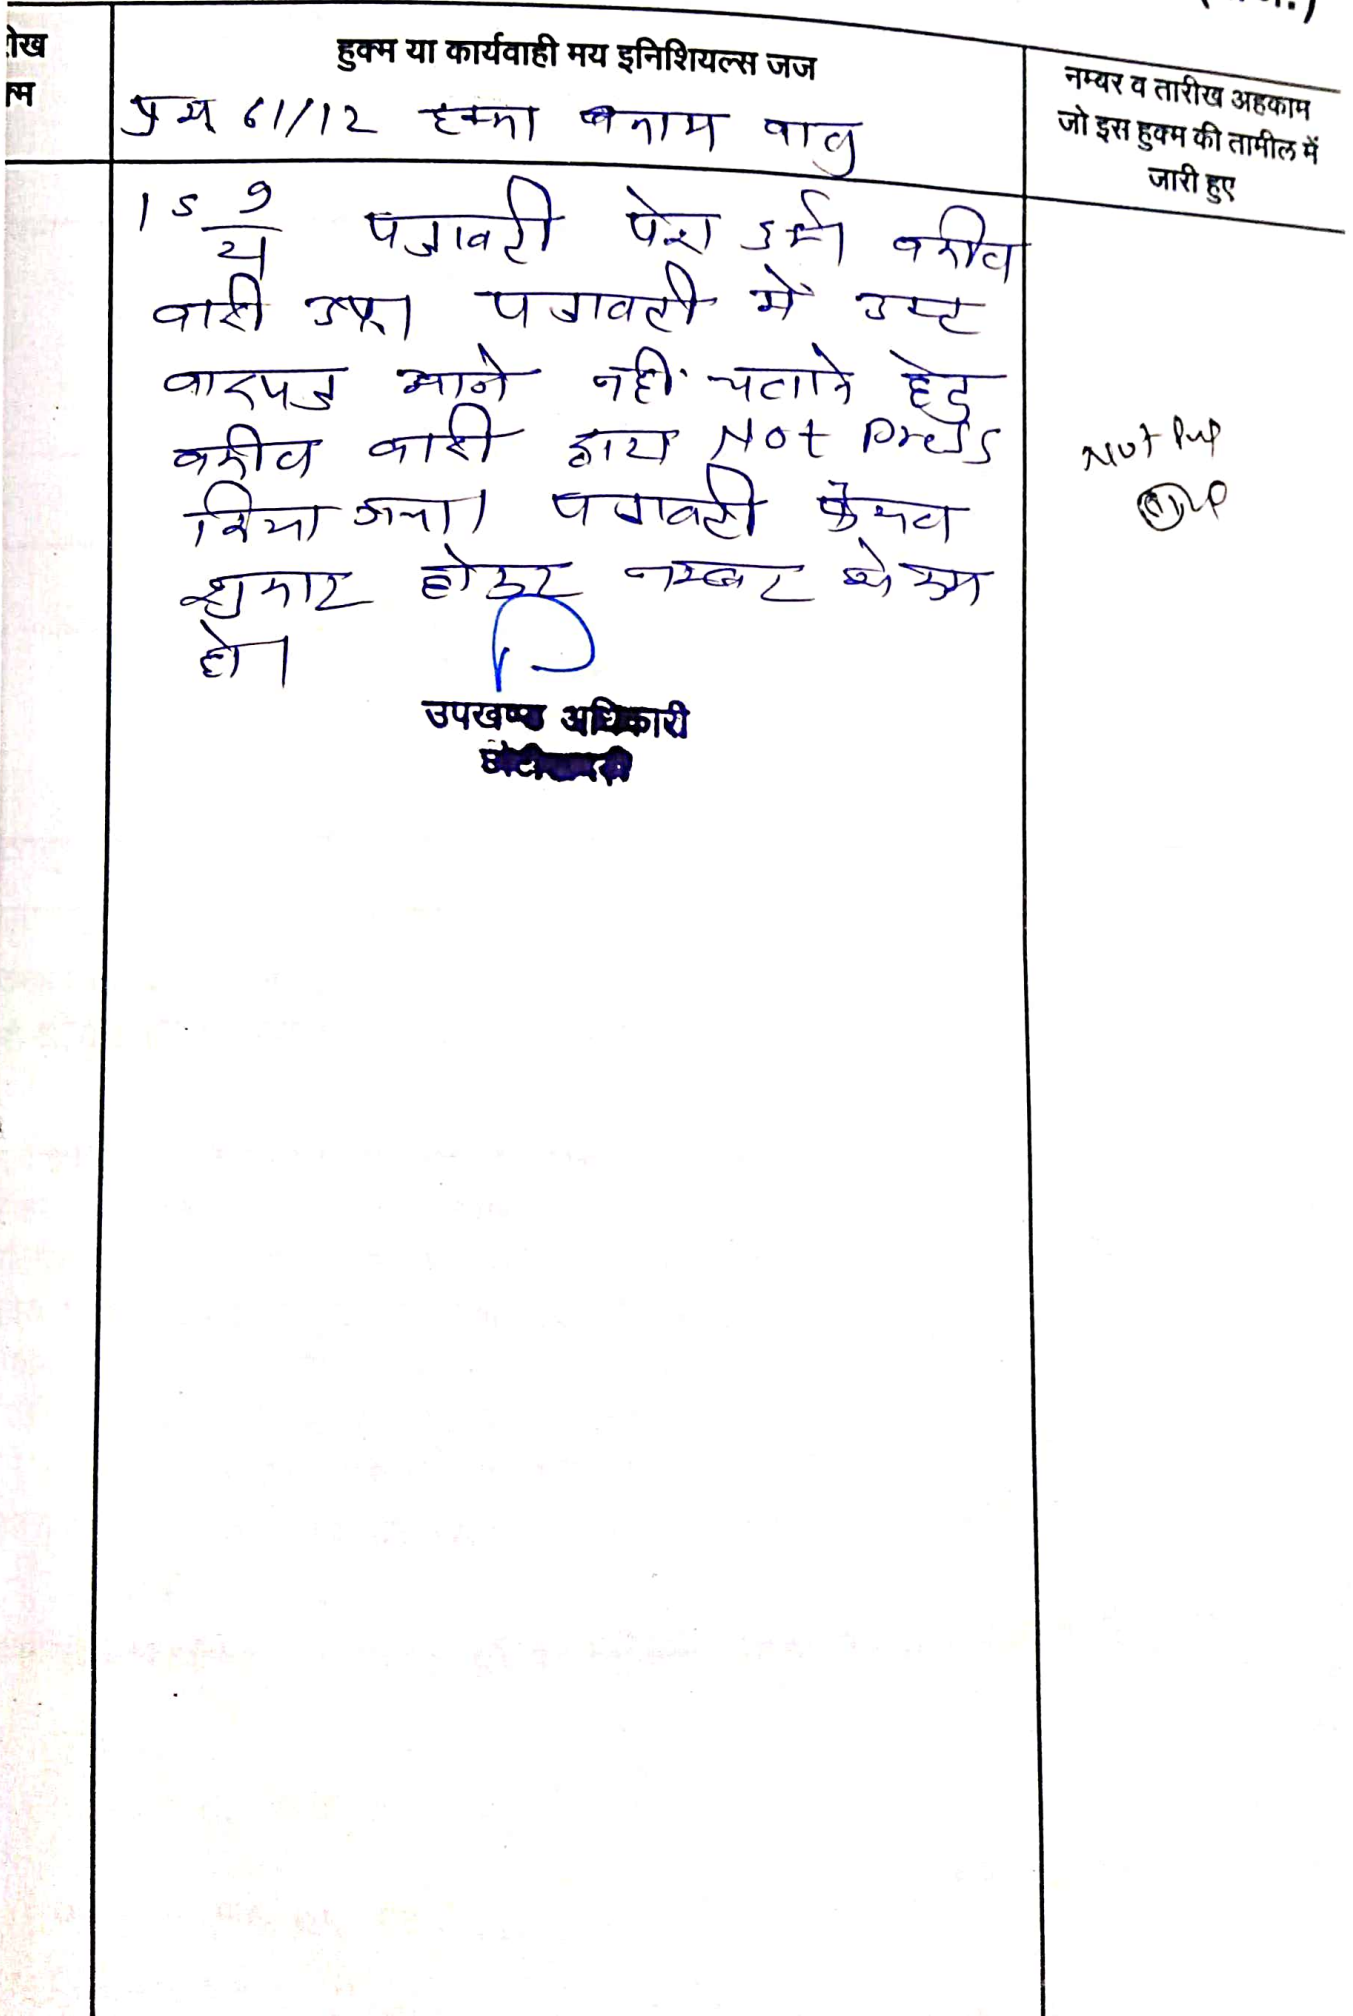 रीख
क्म
हुक्म या कार्यवाही मय इनिशियल्स जज
नम्बर व तारीख अहकाम
जो इस हुक्म की तामील में
जारी हुए
61/12 बनाम बाबु
15 9
पत्रावली पेश हुई वकील
वादी उप। पत्रावली में उक्त
वादपत्र आगे नही चलाने हेतु
वकील वादी द्वारा Not Press
किया गया। पत्रावली फैसल
शुमार होकर नम्बर से कम
हो।
उपखण्ड अधिकारी
Not